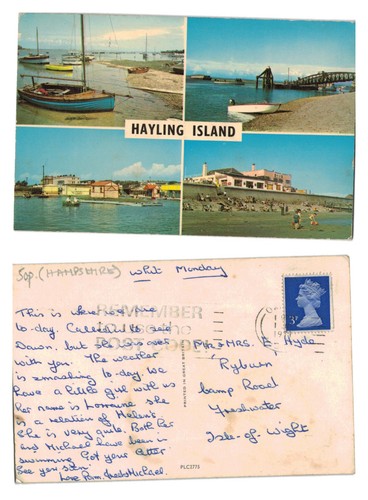 HAYLING ISLAND
50p. (HAMPSHIRE) Whit Monday
REMEMBER
3P
This is where we are
to-day. Called to see
Dawn, but
with you. The weather
is smashing to-day. We
have a little girl with us
her name is Lorraine she
is a relation of Helen's.
She is very quite. Both her
and Michael have been in
swimming. Got your letter.
See you soon.
love Pam Michael.
Mr & MRS. E. Hyde
Ryburn
Camp Road
Freshwater
Isle-of Wight
PRINTED IN GREAT BRITAIN
PLC2773